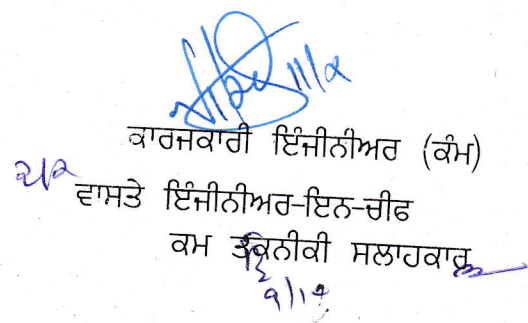 11/2
ਕਾਰਜਕਾਰੀ ਇੰਜੀਨੀਅਰ (ਕੰਮ)
ਵਾਸਤੇ ਇੰਜੀਨੀਅਰ-ਇਨ-ਚੀਫ
ਕਮ ਤਕਨੀਕੀ ਸਲਾਹਕਾਰ